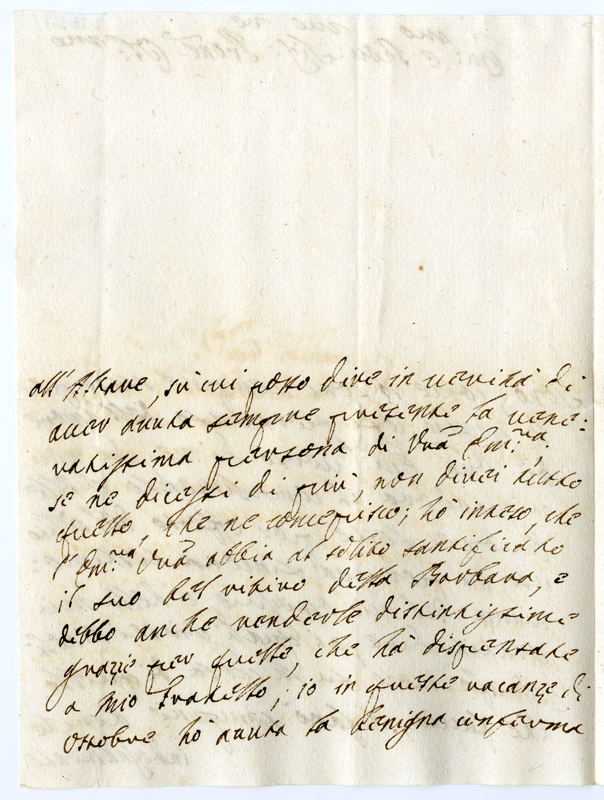 all' Altare, sù cui posso dire in verità di
aver avuta sempre presente la vene:
ratissima persona di Vrā Em.za,
se ne dicessi di più, non direi tutto
quello, che ne concepisco; hò inteso, che
l'Em.za Vrā abbia al sòlito santificato
il suo bel ritiro della Barbara, e
debbo anche renderle distintissime
grazie per quelle, che hà dispensate
a mio Fratello; io in queste vacanze di
Ottobre hò avuta la benigna conferma